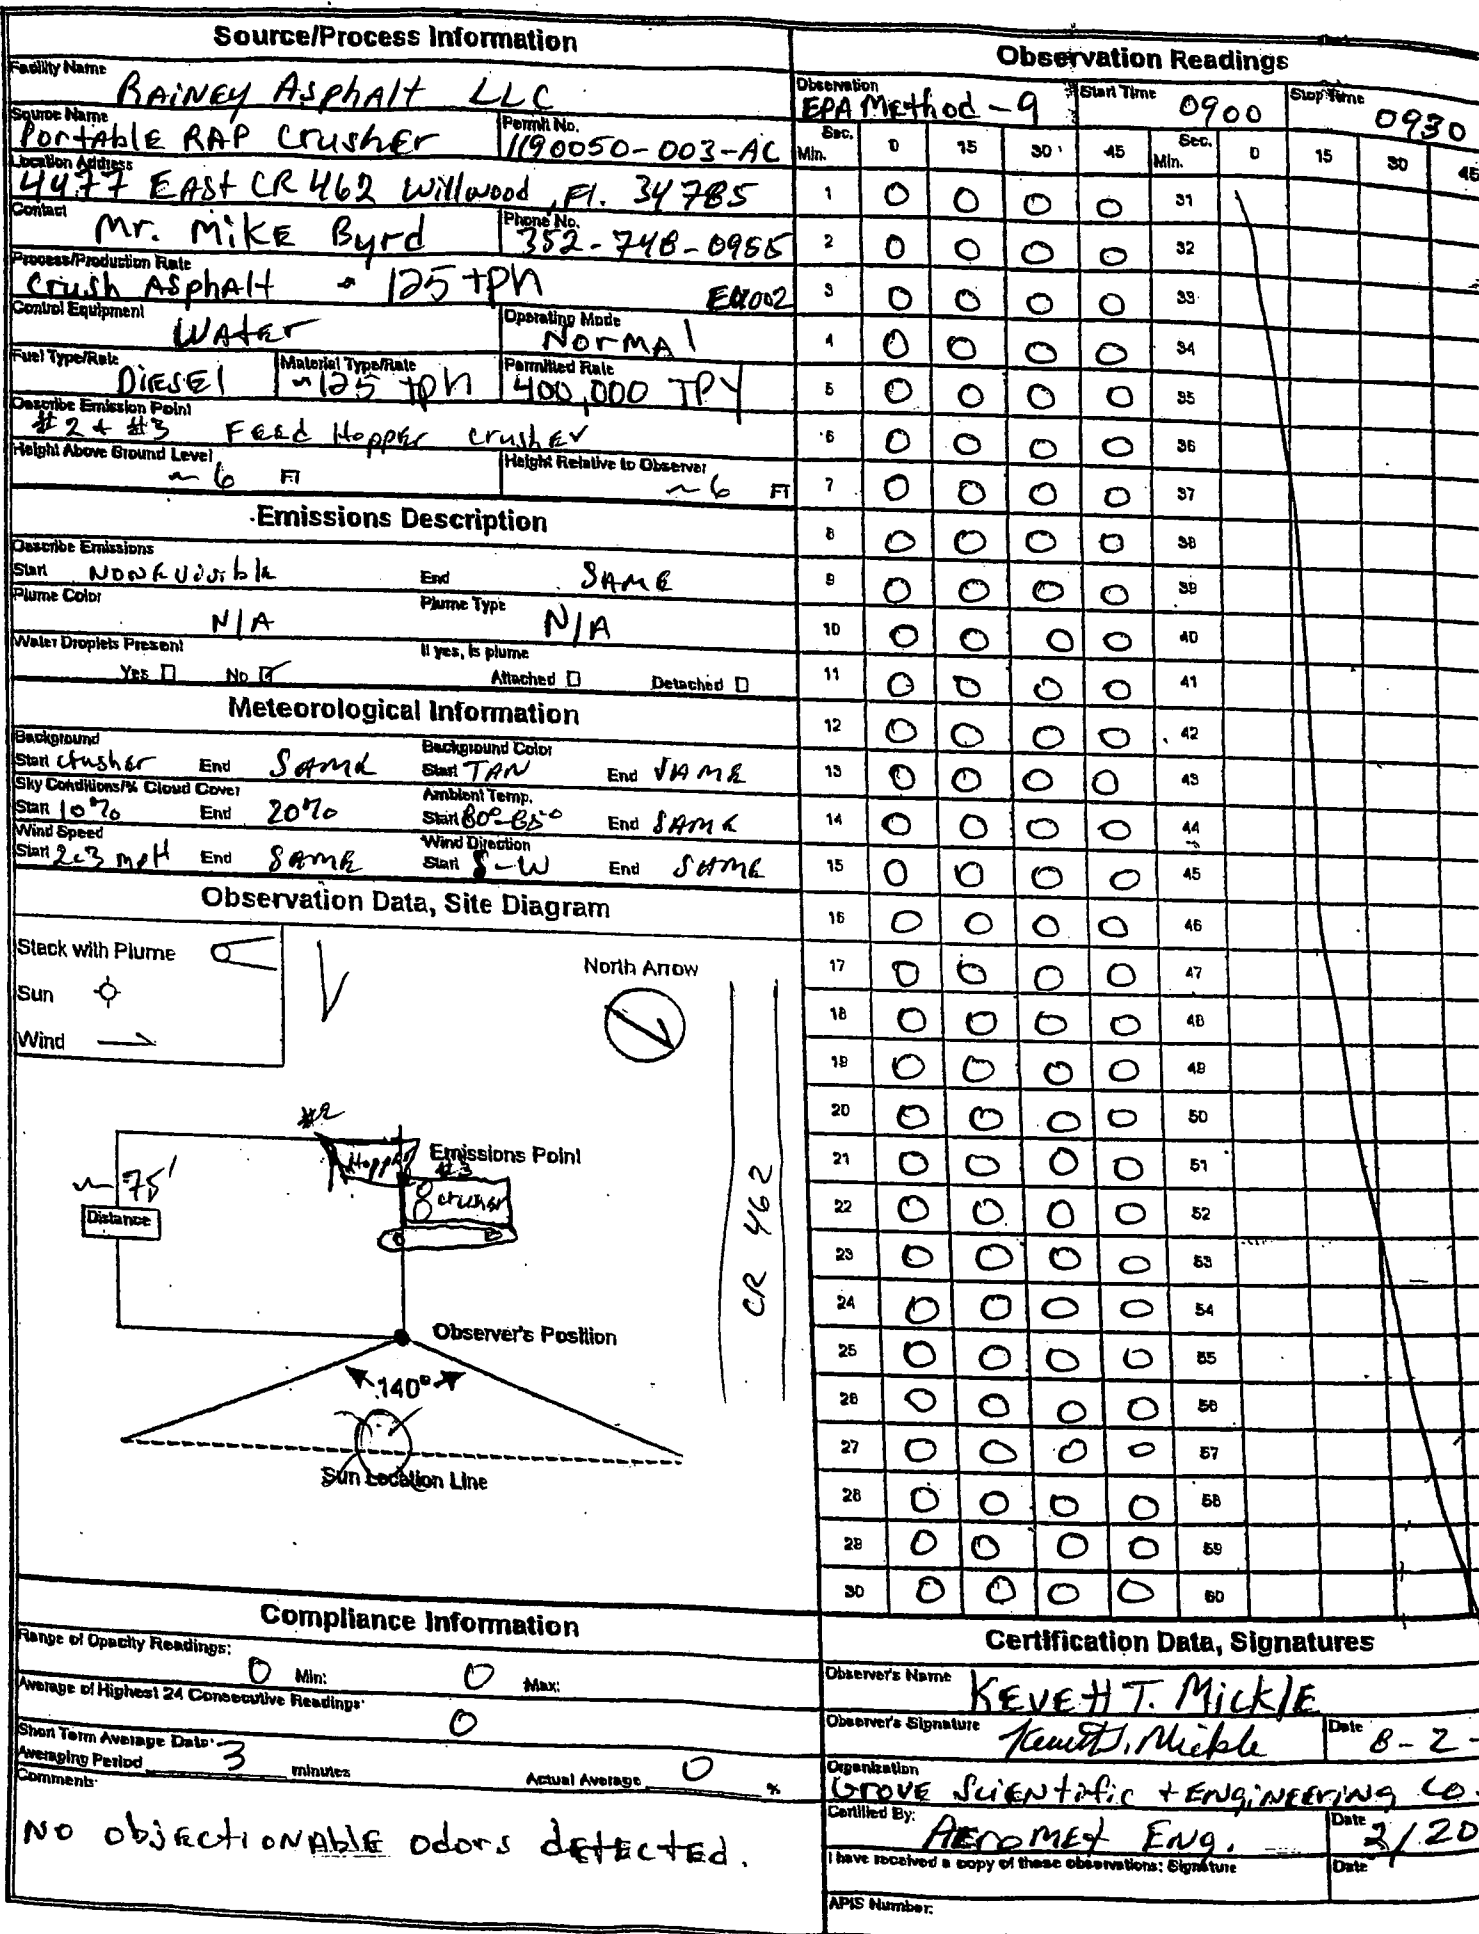 Source/Process Information
Facility Name
RAiNEY AsphAlt LLC
Source Name
PortABLE RAP Crusher
Permit No.
1190050-003-AC
Location Address
4477 EASt CR 462 Willwood, Fl. 34785
Contact
Mr. MiKE Byrd
Phone No.
352-748-0955
Process/Production Rate
Crush AsphAlt ~ 125 tph
EU002
Control Equipment
WAter
Operating Mode
NorMAl
Fuel Type/Rate
DiESEl
Material Type/Rate
~125 tph
Permitted Rate
400,000 TPY
Describe Emission Point
#2 + #3 FEEd HoppEr crushEr
Height Above Ground Level
~ 6 FT
Height Relative to Observer
~ 6 FT
Emissions Description
Describe Emissions
Start NONE Visible
End SAME
Plume Color
N/A
Plume Type
N/A
Water Droplets Present
Yes No
If yes, is plume
Attached Detached
Meteorological Information
Background
Start crusher End SAME
Background Color
Start TAN End SAME
Sky Conditions/% Cloud Cover
Start 10% End 20%
Ambient Temp.
Start 80°-85° End SAME
Wind Speed
Start 2-3 mpH End SAME
Wind Direction
Start S-W End SAME
Observation Data, Site Diagram
Stack with Plume
Sun
Wind
North Arrow
#2
Hopper
Emissions Point
#3
crusher
~ 75'
Distance
CR 462
Observer's Position
140°
Sun Location Line
Compliance Information
Range of Opacity Readings:
0 Min: 0 Max:
Average of Highest 24 Consecutive Readings:
0
Short Term Average Data:
Averaging Period 3 minutes
Actual Average 0 %
Comments:
NO objEctionABLE odors dEtEctEd.
Observation Readings
Observation
EPA MEthod-9
Start Time
0900
Stop Time
0930
Sec. Min. 0 15 30 45 Sec. Min. 0 15 30 45
1 0 0 0 0 31
2 0 0 0 0 32
3 0 0 0 0 33
4 0 0 0 0 34
5 0 0 0 0 35
6 0 0 0 0 36
7 0 0 0 0 37
8 0 0 0 0 38
9 0 0 0 0 39
10 0 0 0 0 40
11 0 0 0 0 41
12 0 0 0 0 42
13 0 0 0 0 43
14 0 0 0 0 44
15 0 0 0 0 45
16 0 0 0 0 46
17 0 0 0 0 47
18 0 0 0 0 48
19 0 0 0 0 49
20 0 0 0 0 50
21 0 0 0 0 51
22 0 0 0 0 52
23 0 0 0 0 53
24 0 0 0 0 54
25 0 0 0 0 55
26 0 0 0 0 56
27 0 0 0 0 57
28 0 0 0 0 58
29 0 0 0 0 59
30 0 0 0 0 60
Certification Data, Signatures
Observer's Name
KEVEtt T. MicklE
Observer's Signature
Kevett T. Mickle
Date
8-2-
Organization
GrovE SciENtific + ENgiNEEriNg Co.
Certified By:
AEroMEt ENg.
Date
2/20
I have received a copy of these observations: Signature
Date
APIS Number: